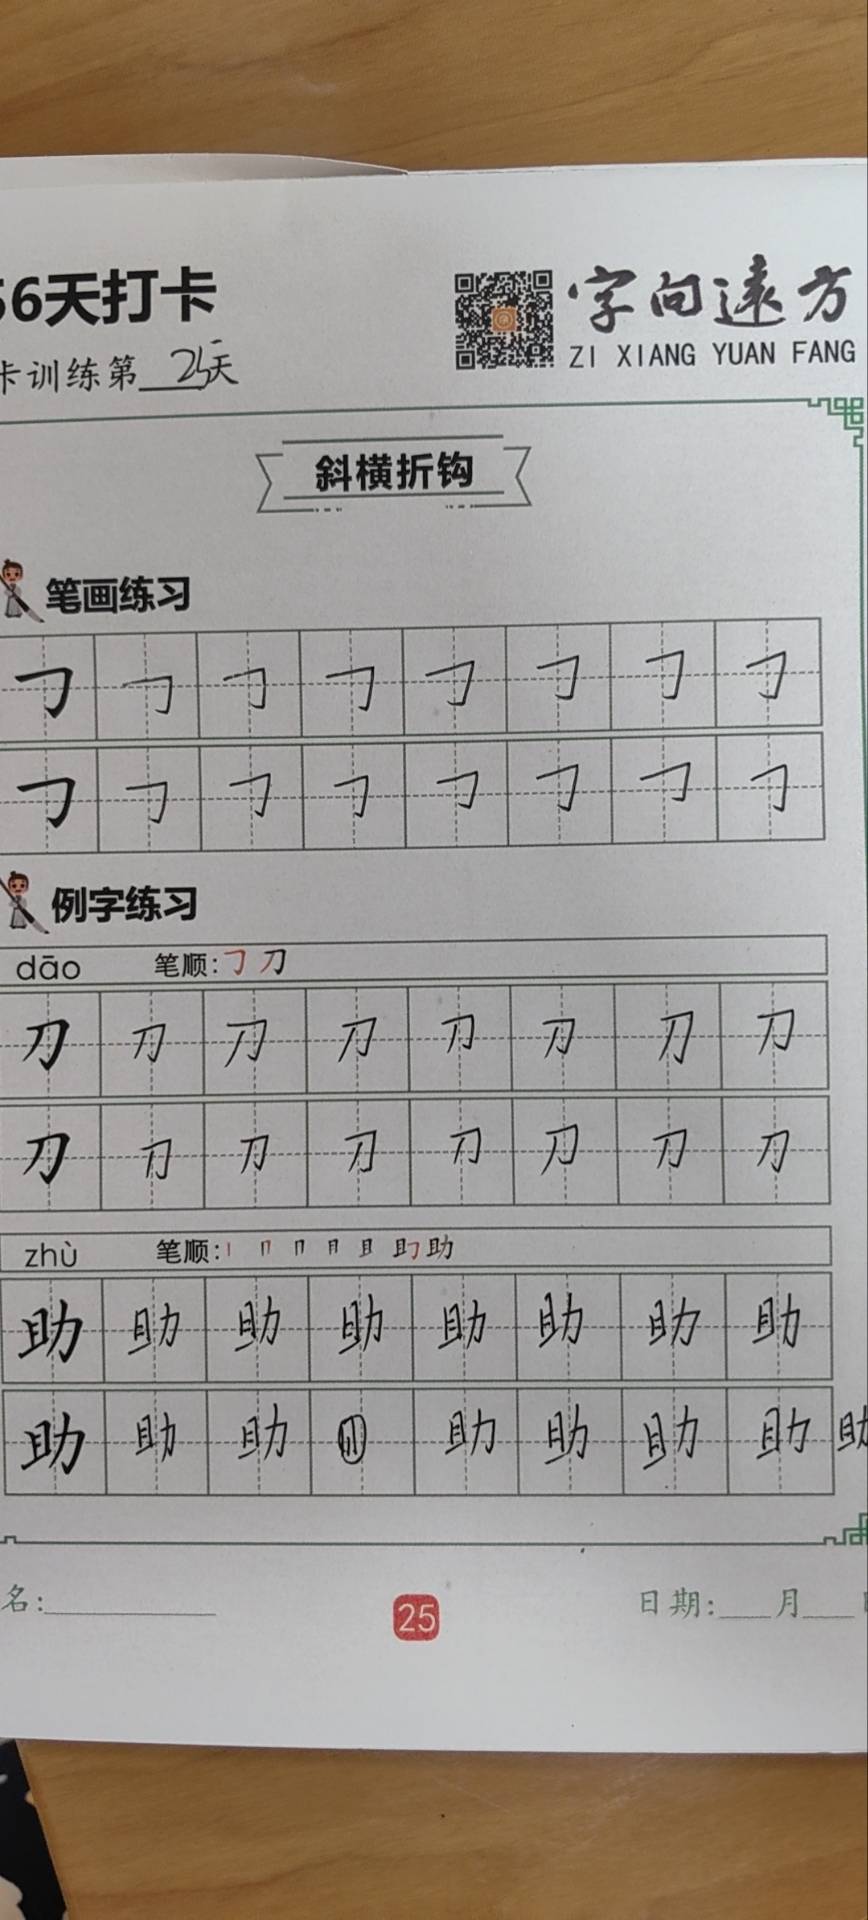 56天打卡
字向远方
ZI XIANG YUAN FANG
卡训练第25天
斜横折钩
笔画练习
㇆ ㇆ ㇆ ㇆ ㇆ ㇆ ㇆ ㇆
㇆ ㇆ ㇆ ㇆ ㇆ ㇆ ㇆ ㇆
例字练习
dāo 笔顺:㇆ 刀
刀 刀 刀 刀 刀 刀 刀 刀
刀 刀 刀 刀 刀 刀 刀 刀
zhù 笔顺: 助
助 助 助 助 助 助 助 助
助 助 助 助 助 助 助 助
名:
25
日期: 月